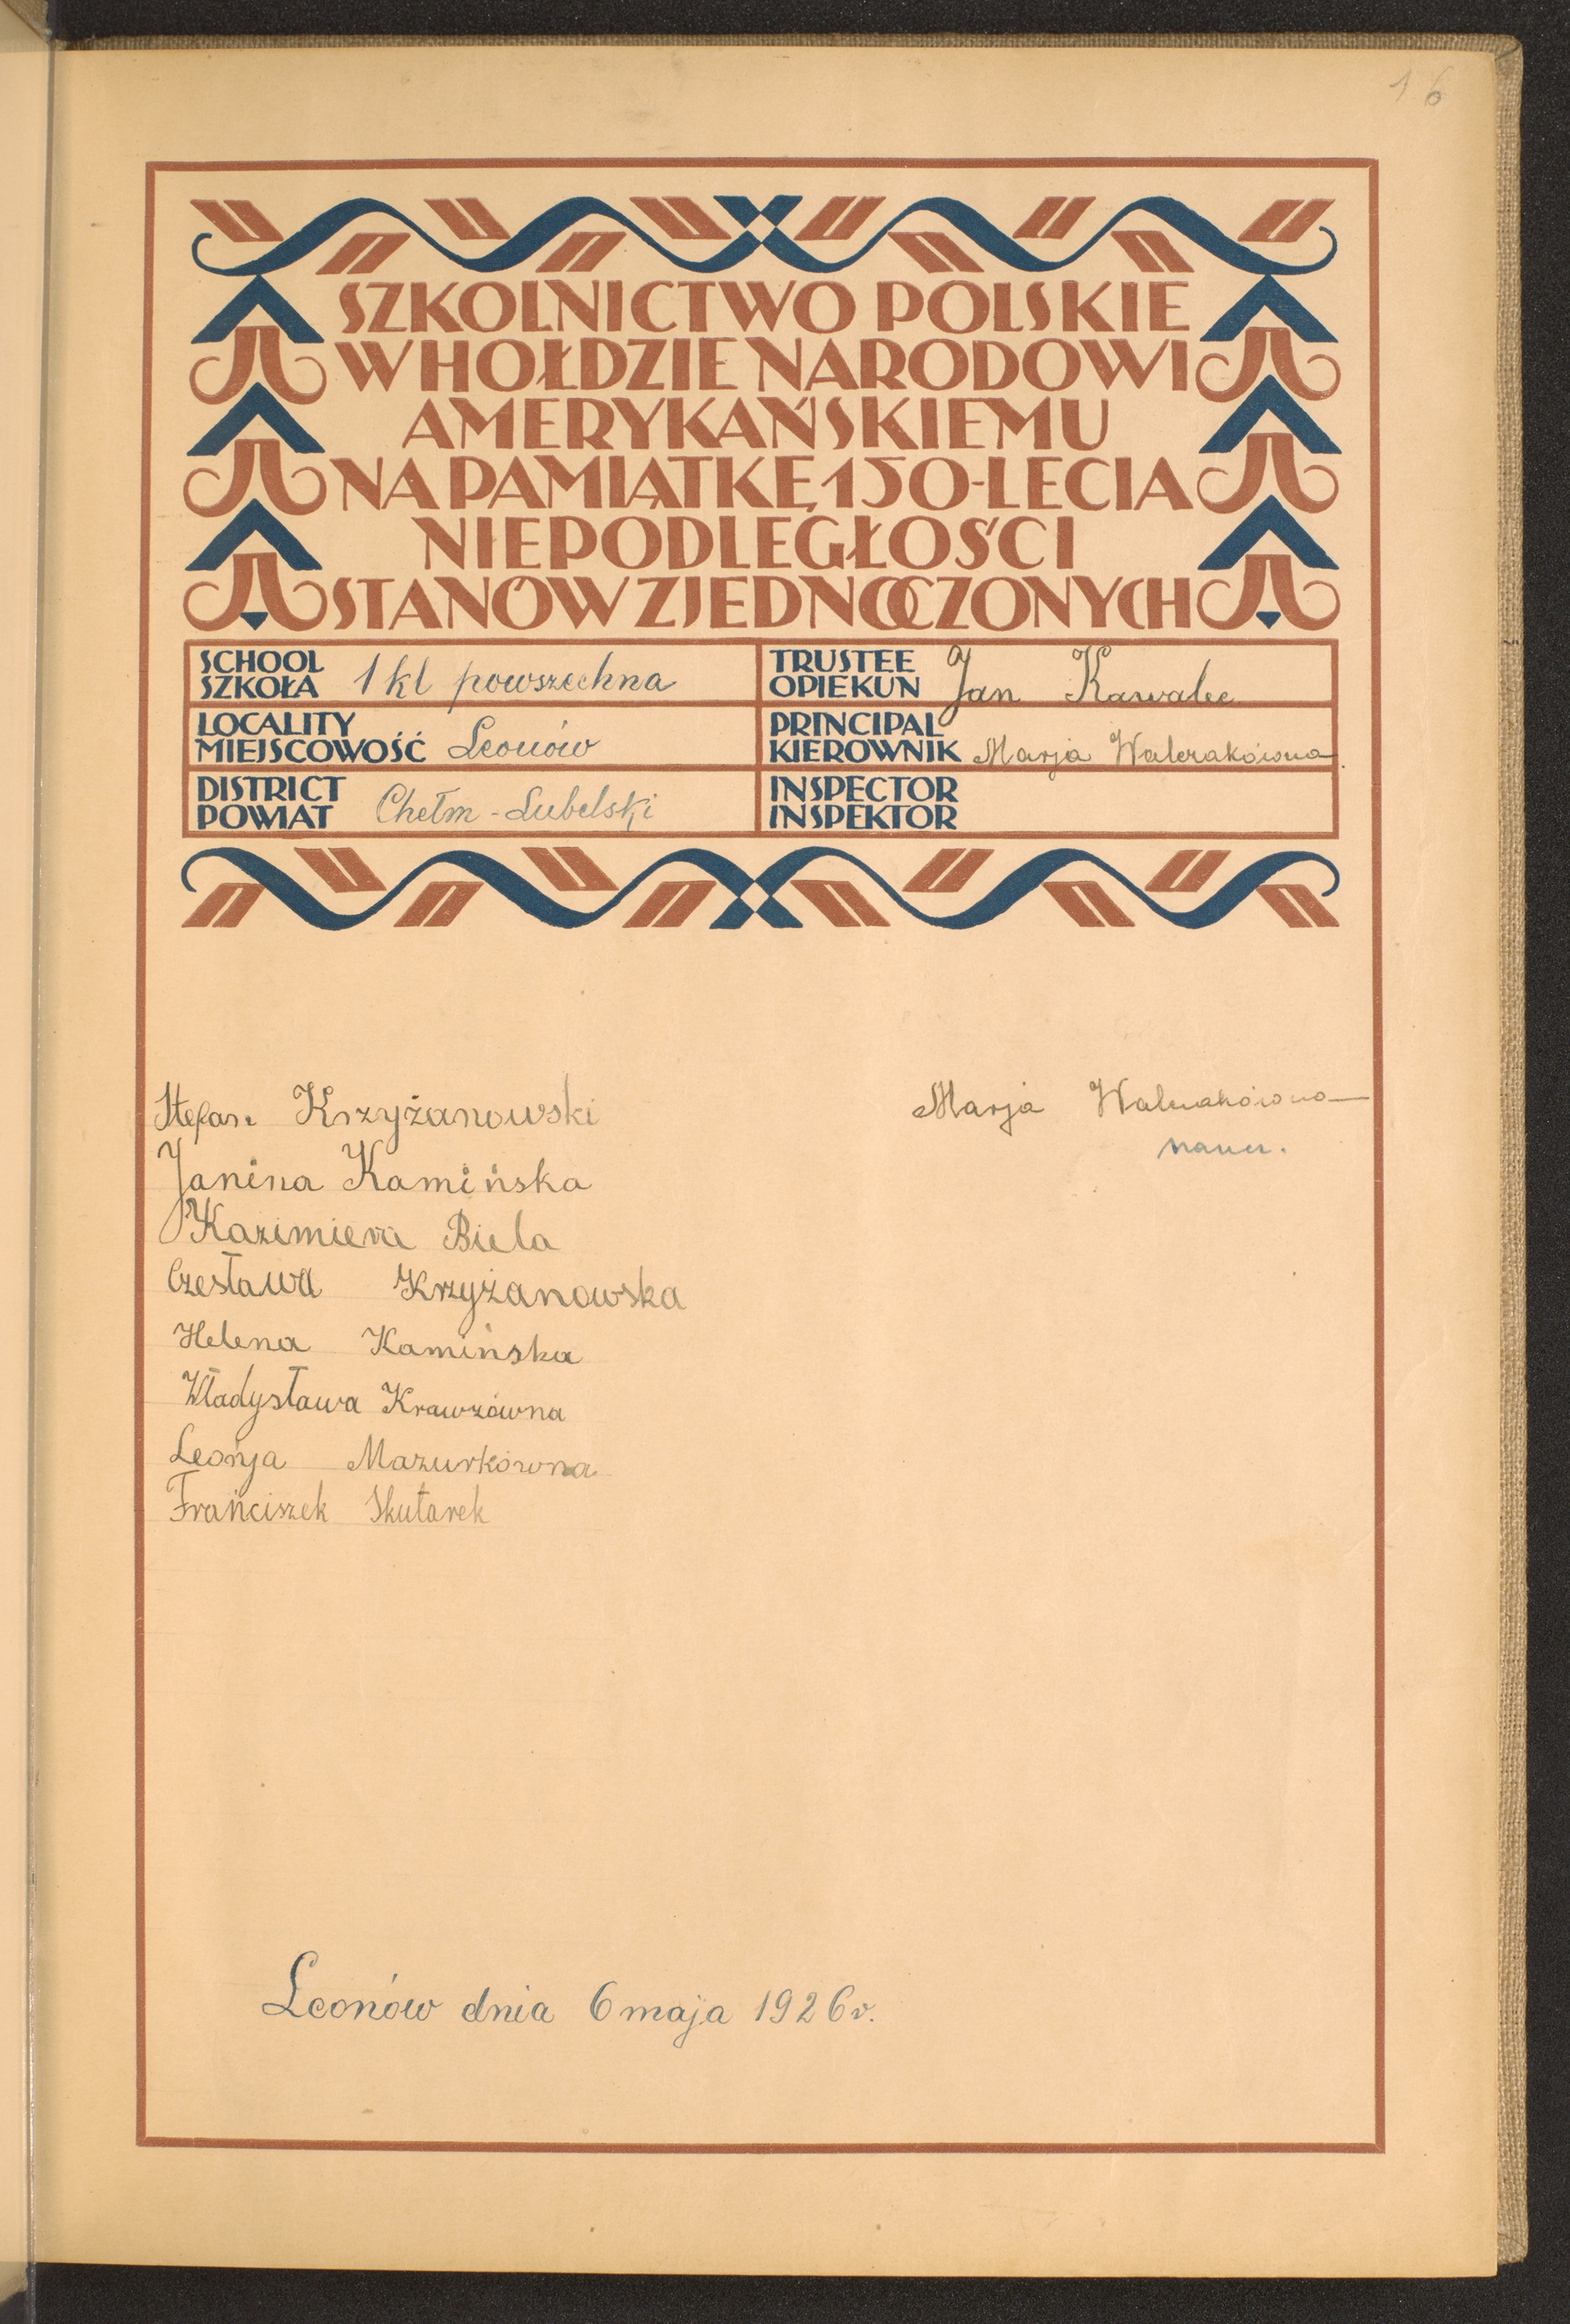 16
SZKOLNICTWO POLSKIE
W HOŁDZIE NARODOWI
AMERYKAŃSKIEMU
NA PAMIĄTKĘ 150-LECIA
NIEPODLEGŁOŚCI
STANÓW ZJEDNOCZONYCH
SCHOOL
SZKOŁA 1 kl powszechna
TRUSTEE
OPIEKUN Jan Kawalec
LOCALITY
MIEJSCOWOŚĆ Leonów
PRINCIPAL
KIEROWNIK Marja
DISTRICT
POWIAT Chełm-Lubelski
INSPECTOR
INSPEKTOR
Stefan Krzyżanowski
Marja
naucz.
Janina Kamińska
Kazimiera Biela
Czesława Krzyżanowska
Helena Kamińska
Władysława Krawzówna
Leonja Mazurkówna
Franciszek Skutarek
Leonów dnia 6 maja 1926 r.